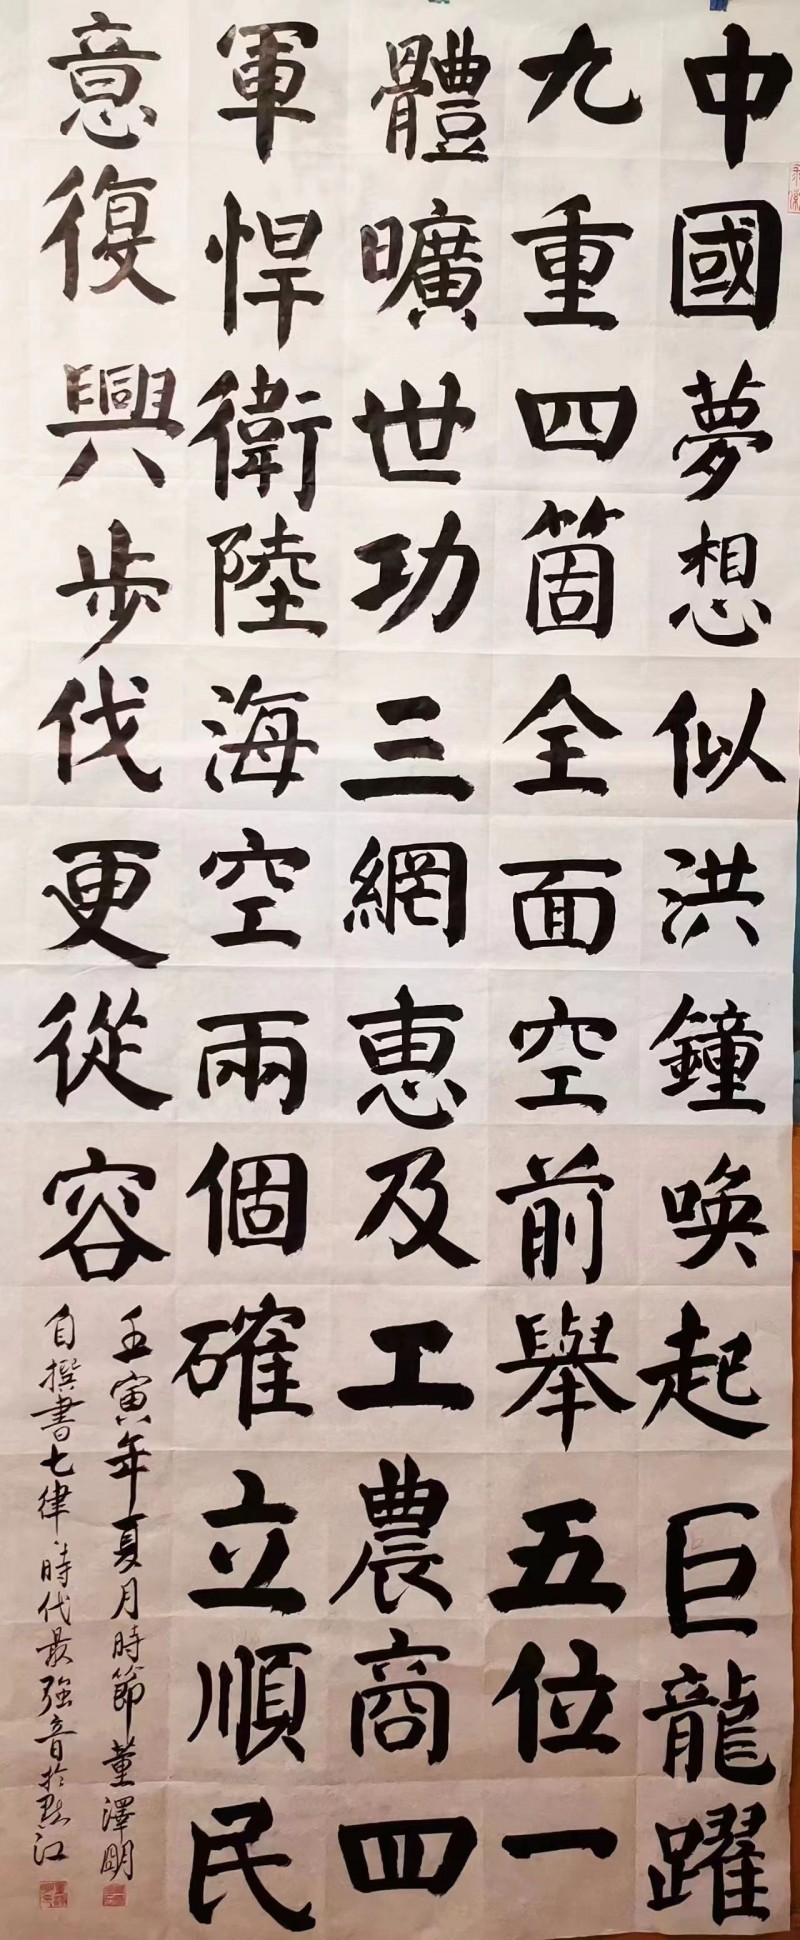 中國夢想似洪鐘喚起巨龍躍
九重四箇全面空前舉五位一
體曠世功三網惠及工農商四
軍悍衛陸海空兩個確立順民
意復興步伐更從容
壬寅年夏月時節董澤明
自撰書七律·時代最強音於黔江